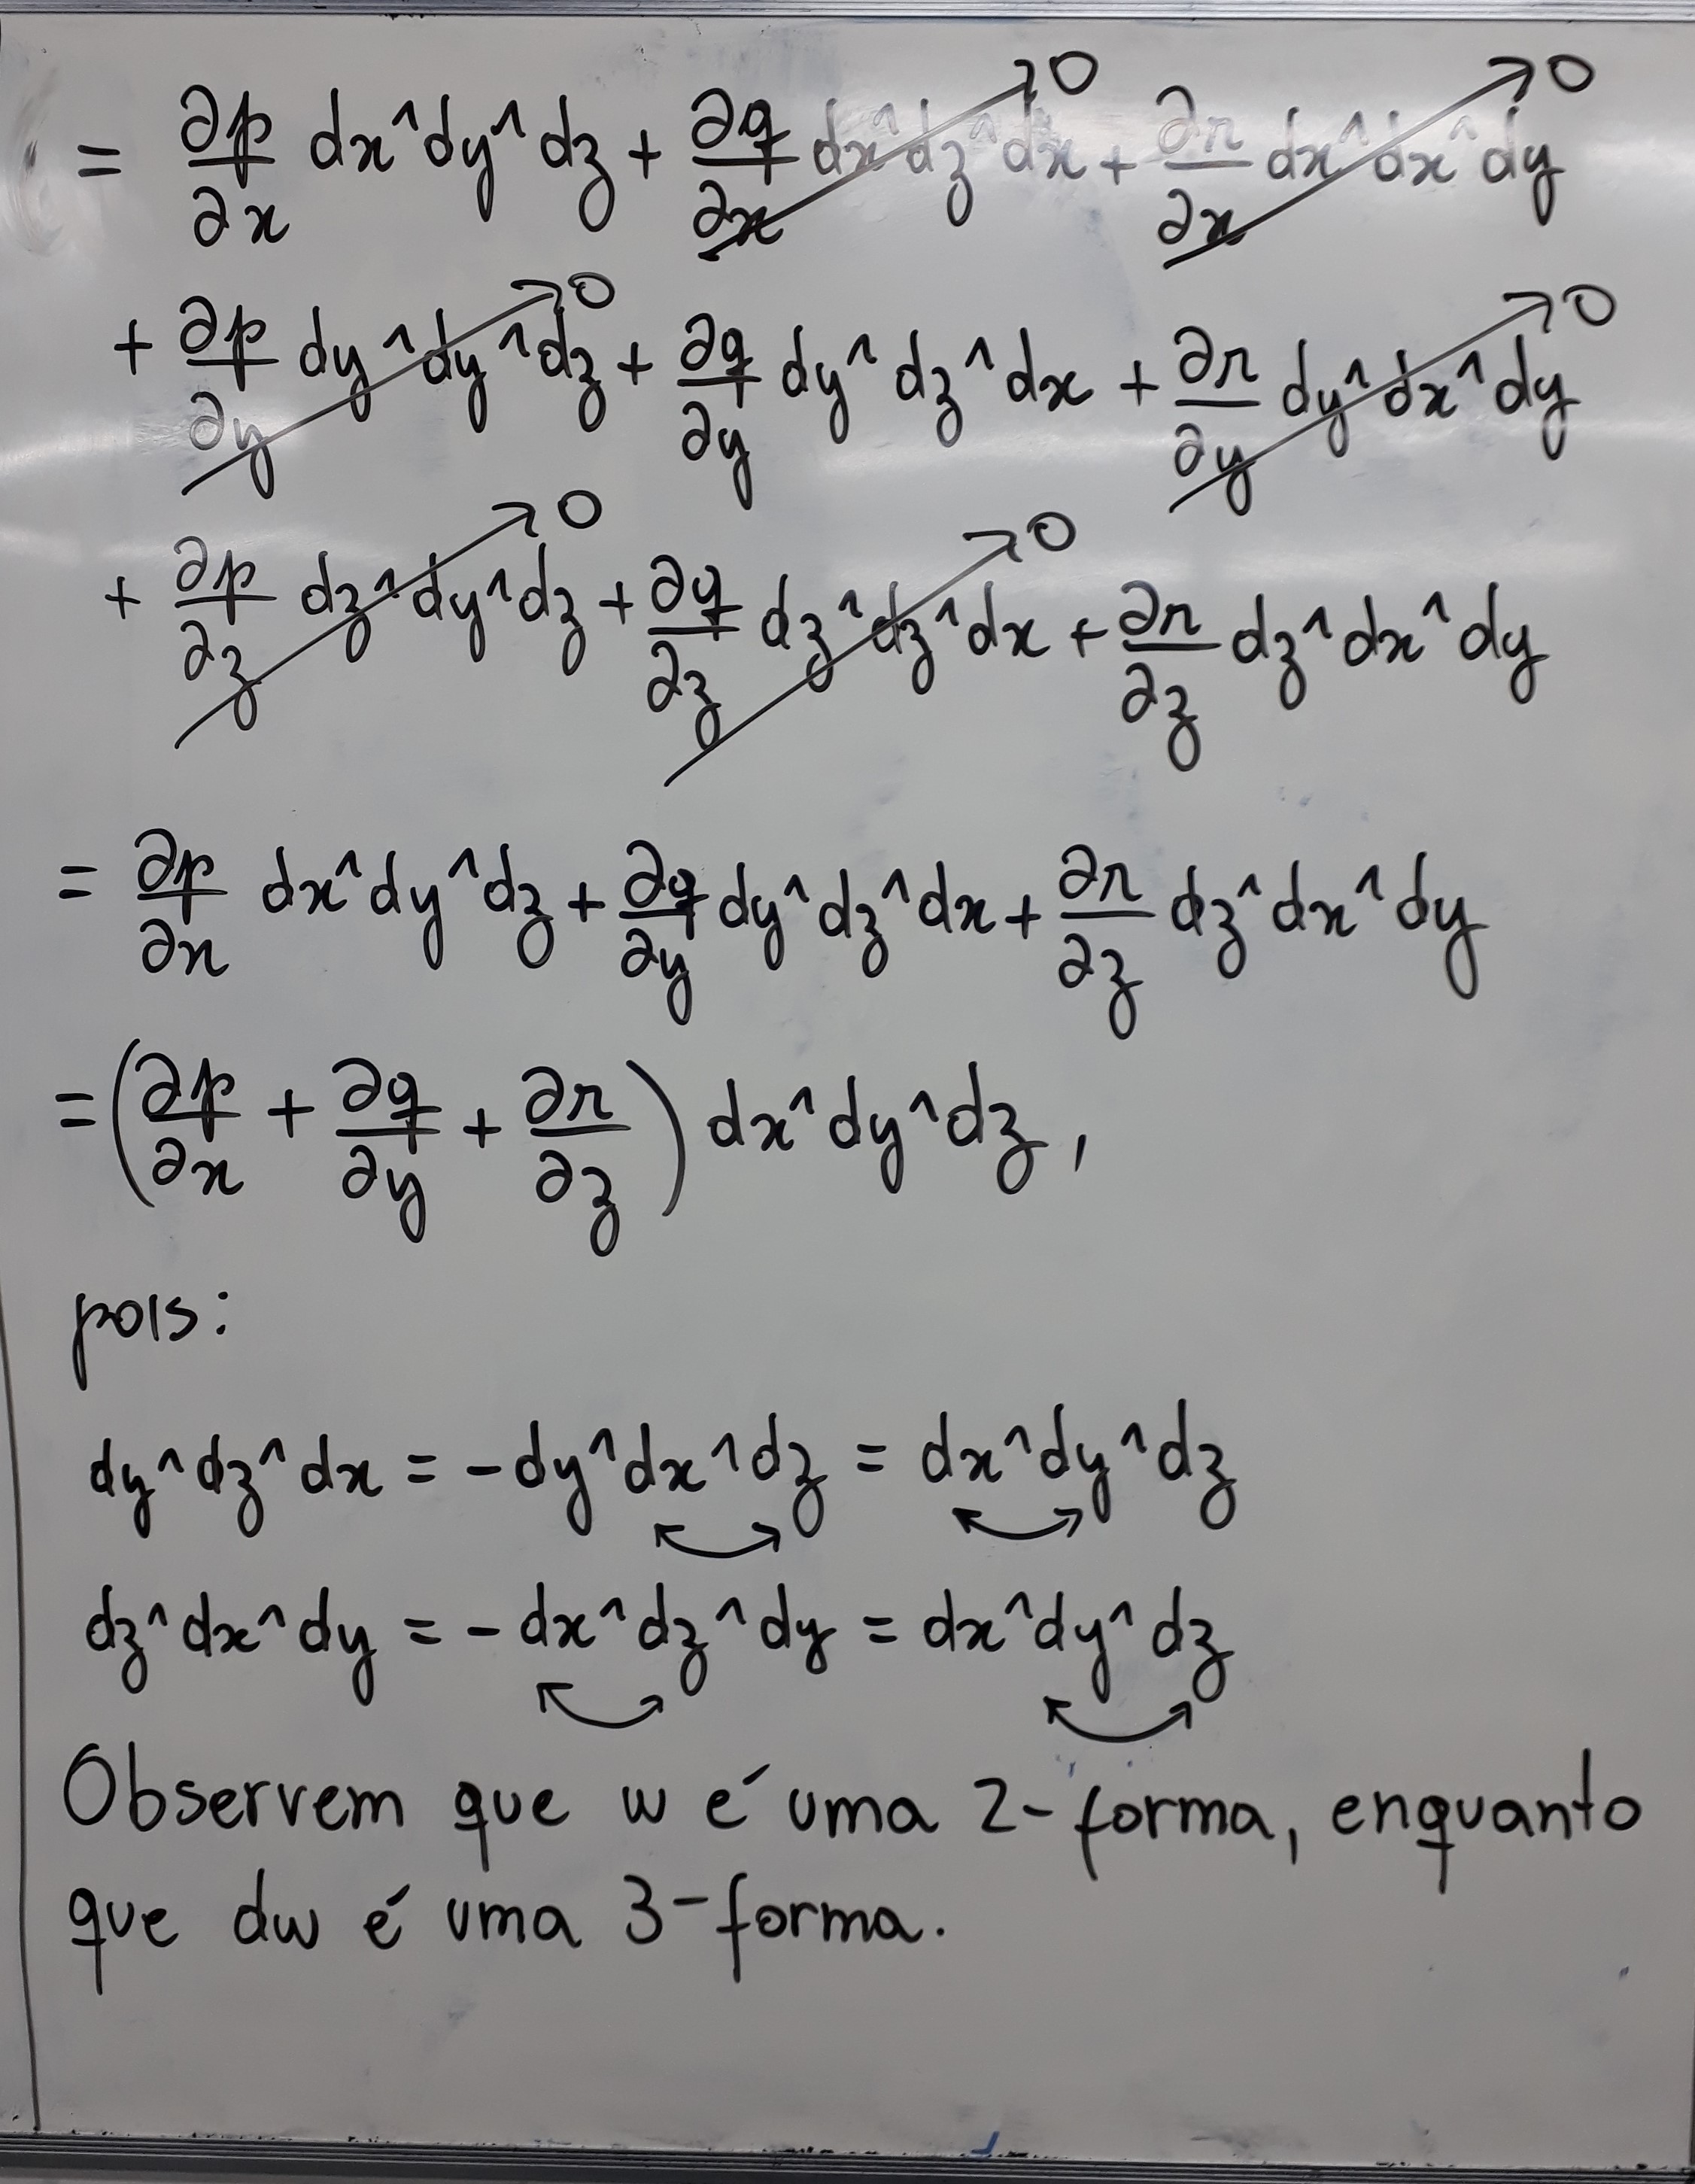 = ∂p/∂x dx^dy^dz + ∂q/∂x dx^dz^dx →0 + ∂r/∂x dx^dx^dy →0
+ ∂p/∂y dy^dy^dz →0 + ∂q/∂y dy^dz^dx + ∂r/∂y dy^dx^dy →0
+ ∂p/∂z dz^dy^dz →0 + ∂q/∂z dz^dz^dx →0 + ∂r/∂z dz^dx^dy
= ∂p/∂x dx^dy^dz + ∂q/∂y dy^dz^dx + ∂r/∂z dz^dx^dy
= (∂p/∂x + ∂q/∂y + ∂r/∂z) dx^dy^dz,
pois:
dy^dz^dx = -dy^dx^dz = dx^dy^dz
dz^dx^dy = -dx^dz^dy = dx^dy^dz
Observem que w é uma 2-forma, enquanto
que dw é uma 3-forma.